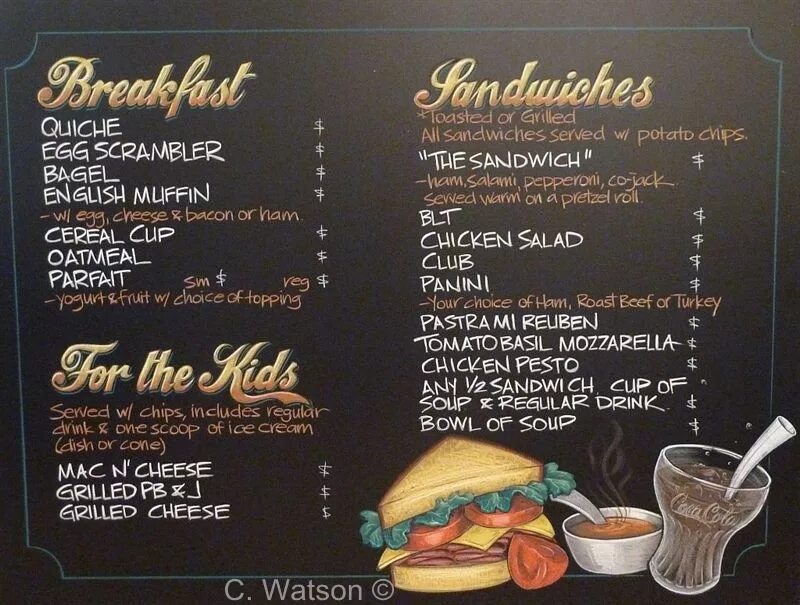 Breakfast
QUICHE $
EGG SCRAMBLER $
BAGEL $
ENGLISH MUFFIN $
- w/ egg, cheese & bacon or ham.
CEREAL CUP $
OATMEAL $
PARFAIT sm $ reg $
- yogurt & fruit w/ choice of topping
For the Kids
Served w/ chips, includes regular
drink & one scoop of ice cream
(dish or cone)
MAC N' CHEESE $
GRILLED PB & J $
GRILLED CHEESE $
Sandwiches
*Toasted or Grilled
All sandwiches served w/ potato chips.
"THE SANDWICH" $
- ham, salami, pepperoni, co-jack.
Served warm on a pretzel roll.
BLT $
CHICKEN SALAD $
CLUB $
PANINI $
- Your choice of Ham, Roast Beef or Turkey
PASTRAMI REUBEN $
TOMATO BASIL MOZZARELLA $
CHICKEN PESTO $
ANY 1/2 SANDWICH, CUP OF
SOUP & REGULAR DRINK $
BOWL OF SOUP $
Coca-Cola
C. Watson ©